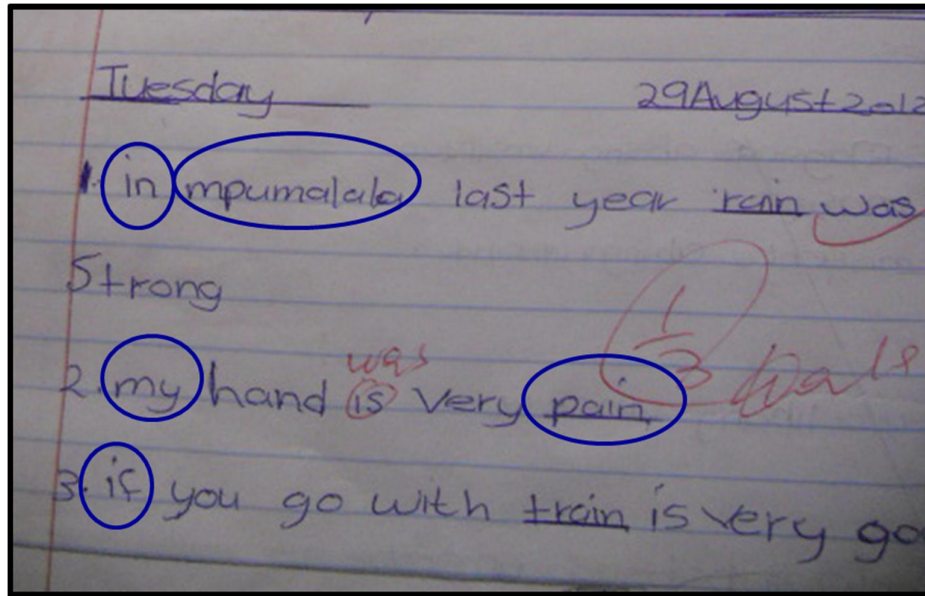 Tuesday 29August2012
1. in mpumalala last year rain was
Strong
was
1/3
2. my hand is very pain
3. if you go with train is very go